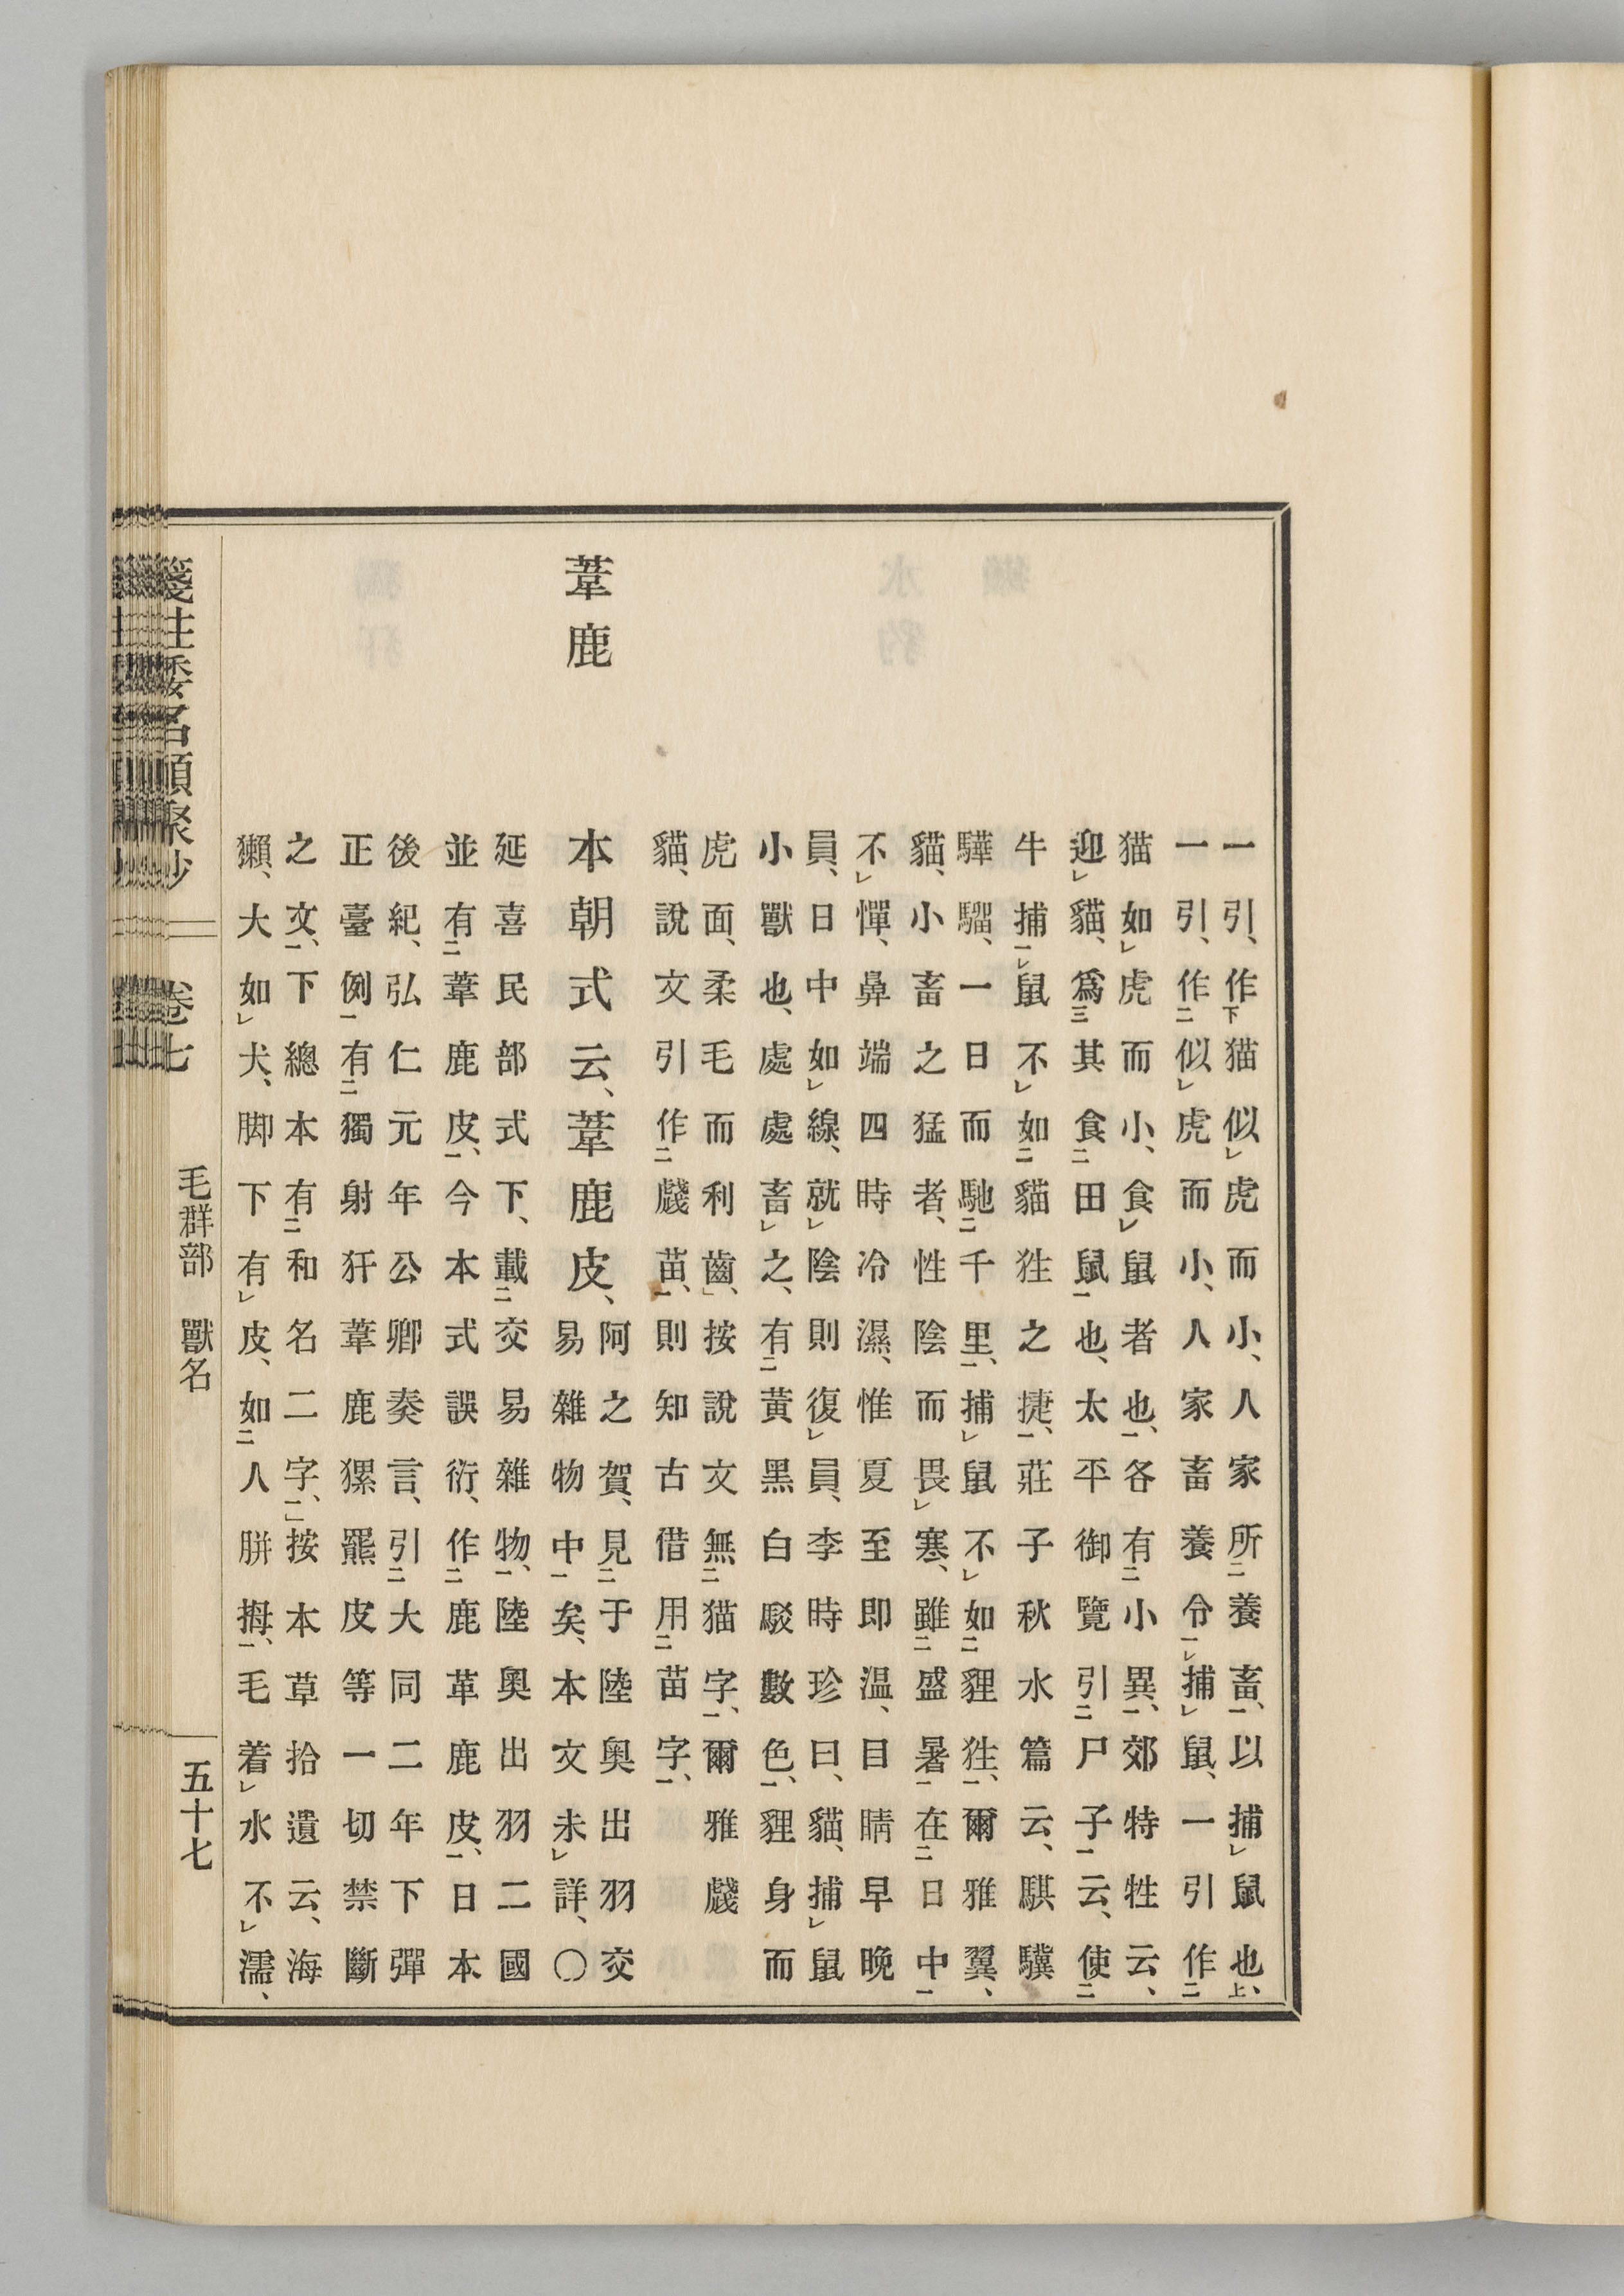 一引、作下猫似レ虎而小、人家所二養畜一、以捕レ鼠也上、
一引、作二似レ虎而小、人家畜養令一レ捕レ鼠、一引作二
猫如レ虎而小、食レ鼠者也一、各有二小異一、郊特牲云、
迎レ貓、爲三其食二田鼠一也、太平御覽引二尸子一云、使二
牛捕一レ鼠不レ如二貓狌之捷一、莊子秋水篇云、騏驥
驊騮、一日而馳二千里一、捕レ鼠不レ如二貍狌一、爾雅翼、
貓、小畜之猛者、性陰而畏レ寒、雖二盛暑一在二日中一
不レ憚、鼻端四時冷濕、惟夏至即温、目睛早晚
員、日中如レ線、就レ陰則復レ員、李時珍曰、貓、捕レ鼠
小獸也、處處畜レ之、有二黃黑白駁數色一、貍身而
虎面、柔毛而利齒」、按說文無二猫字一、爾雅虥
貓、說文引作二虥苗一、則知古借用二苗字一、
葦鹿
本朝式云、葦鹿皮、
阿之賀、見二于陸奥出羽交
易雜物中一矣、本文未レ詳、○
延喜民部式下、載二交易雜物一、陸奥出羽二國
並有二葦鹿皮一、今本式誤衍、作二鹿革鹿皮一、日本
後紀、弘仁元年公卿奏言、引二大同二年下彈
正臺例一有二獨射犴葦鹿猱羆皮等一切禁斷
之文一、下總本有二和名二字一、」按本草拾遺云、海
獺、大如レ犬、脚下有レ皮、如二人胼拇一、毛着レ水不レ濡、
箋注倭名類聚抄
卷七
毛群部 獸名
五十七